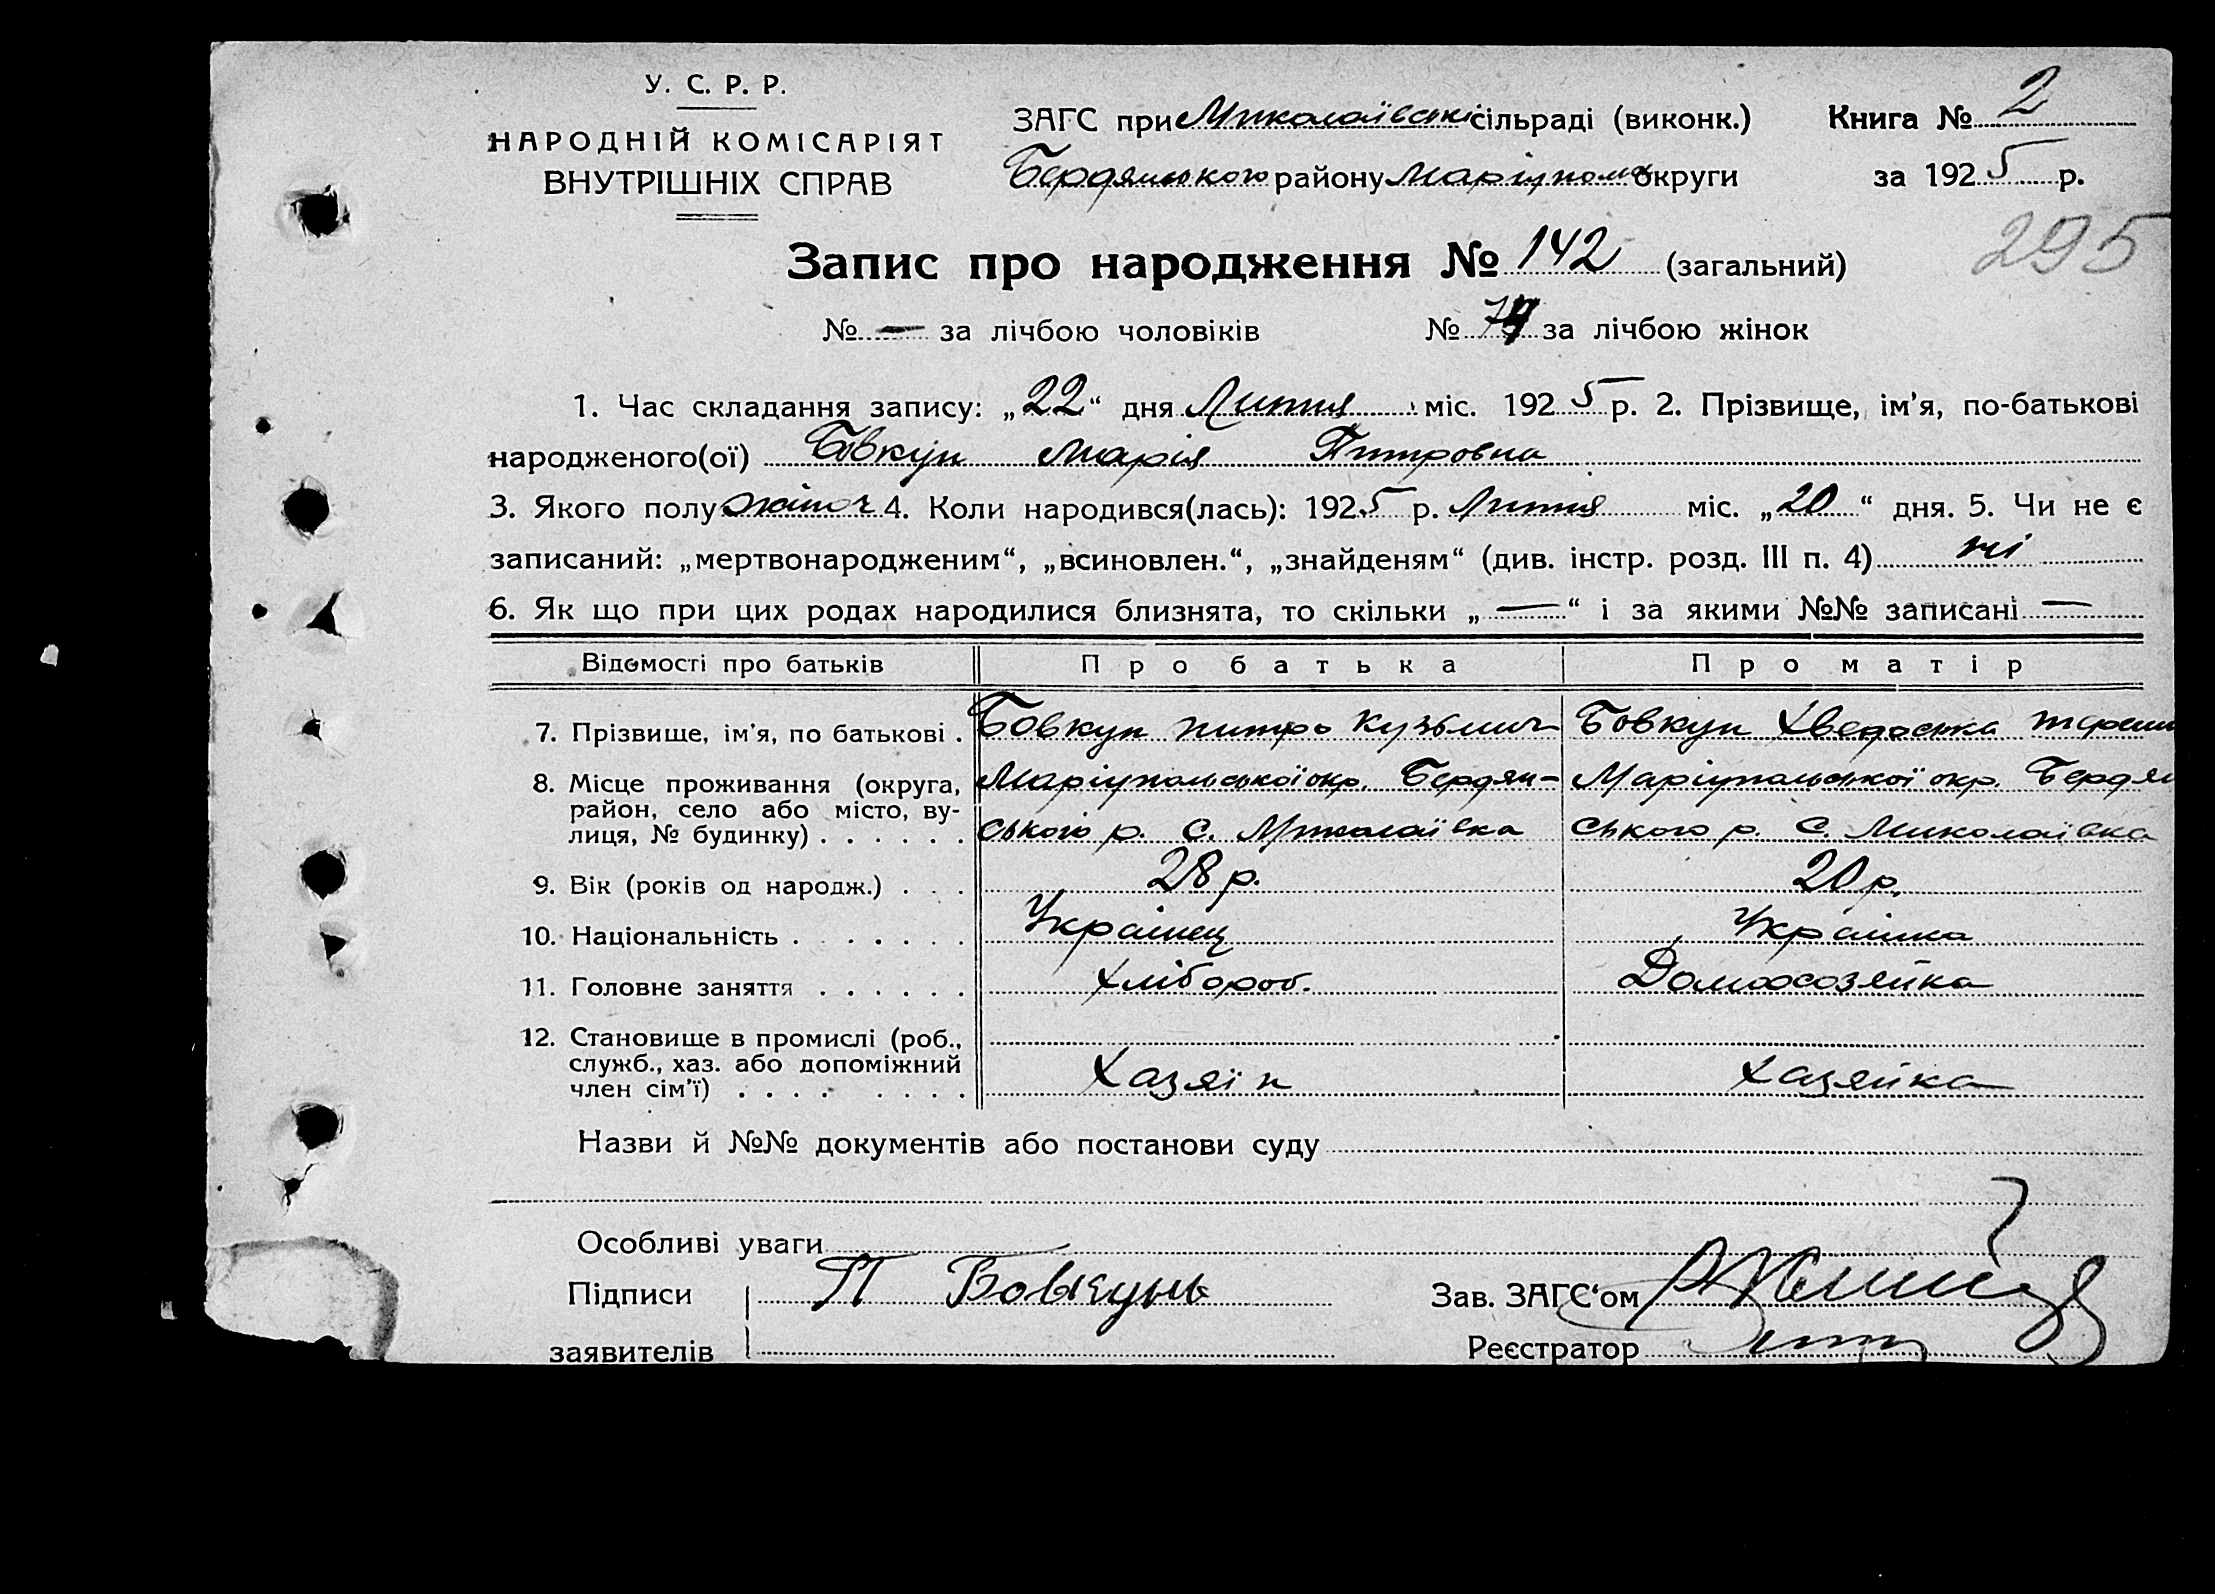 У. С. Р. Р.
НАРОДНІЙ КОМІСАРІЯТ
ВНУТРІШНІХ СПРАВ
ЗАГС при Миколаївські сільраді (виконк.) Книга № 2
Бердянського району Маріупольс округи за 1925 р.
295
Запис про народження № 142 (загальний)
№ — за лічбою чоловіків № 74 за лічбою жінок
1. Час складання запису: „22“ дня Липня міс. 1925 р. 2. Прізвище, ім'я, по-батькові
народженого(ої) Бовкун Марія Питровна
3. Якого полу жіноч 4. Коли народився(лась): 1925 р. Липня міс. „20“ дня. 5. Чи не є
записаний: „мертвонародженим“, „всиновлен.“, „знайденям“ (див. інстр. розд. III п. 4) ні
6. Як що при цих родах народилися близнята, то скільки „—“ і за якими №№ записані —
Відомості про батьків Про батька Про матір
7. Прізвище, ім'я, по батькові . Бовкун Питро Кузьмич Бовкун Хведоська
8. Місце проживання (округа, Маріупольської окр. Бердян- Маріупольської окр. Бердян
район, село або місто, ву-
лиця, № будинку) . . . . . . ського р. С. Миколаївка ського р. С. Миколаївка
9. Вік (років од народж.) . . . 28 р. 20 р.
10. Національність . . . . . . Українец Українка
11. Головне заняття . . . . . . Хлібороб. Домохозяйка
12. Становище в промислі (роб.,
служб., хаз. або допоміжний Хазяїн Хазяйка
член сім'ї) . . . . . . . .
Назви й №№ документів або постанови суду
Особливі уваги
Підписи П Бовкунь Зав. ЗАГС'ом
заявителів Реєстратор